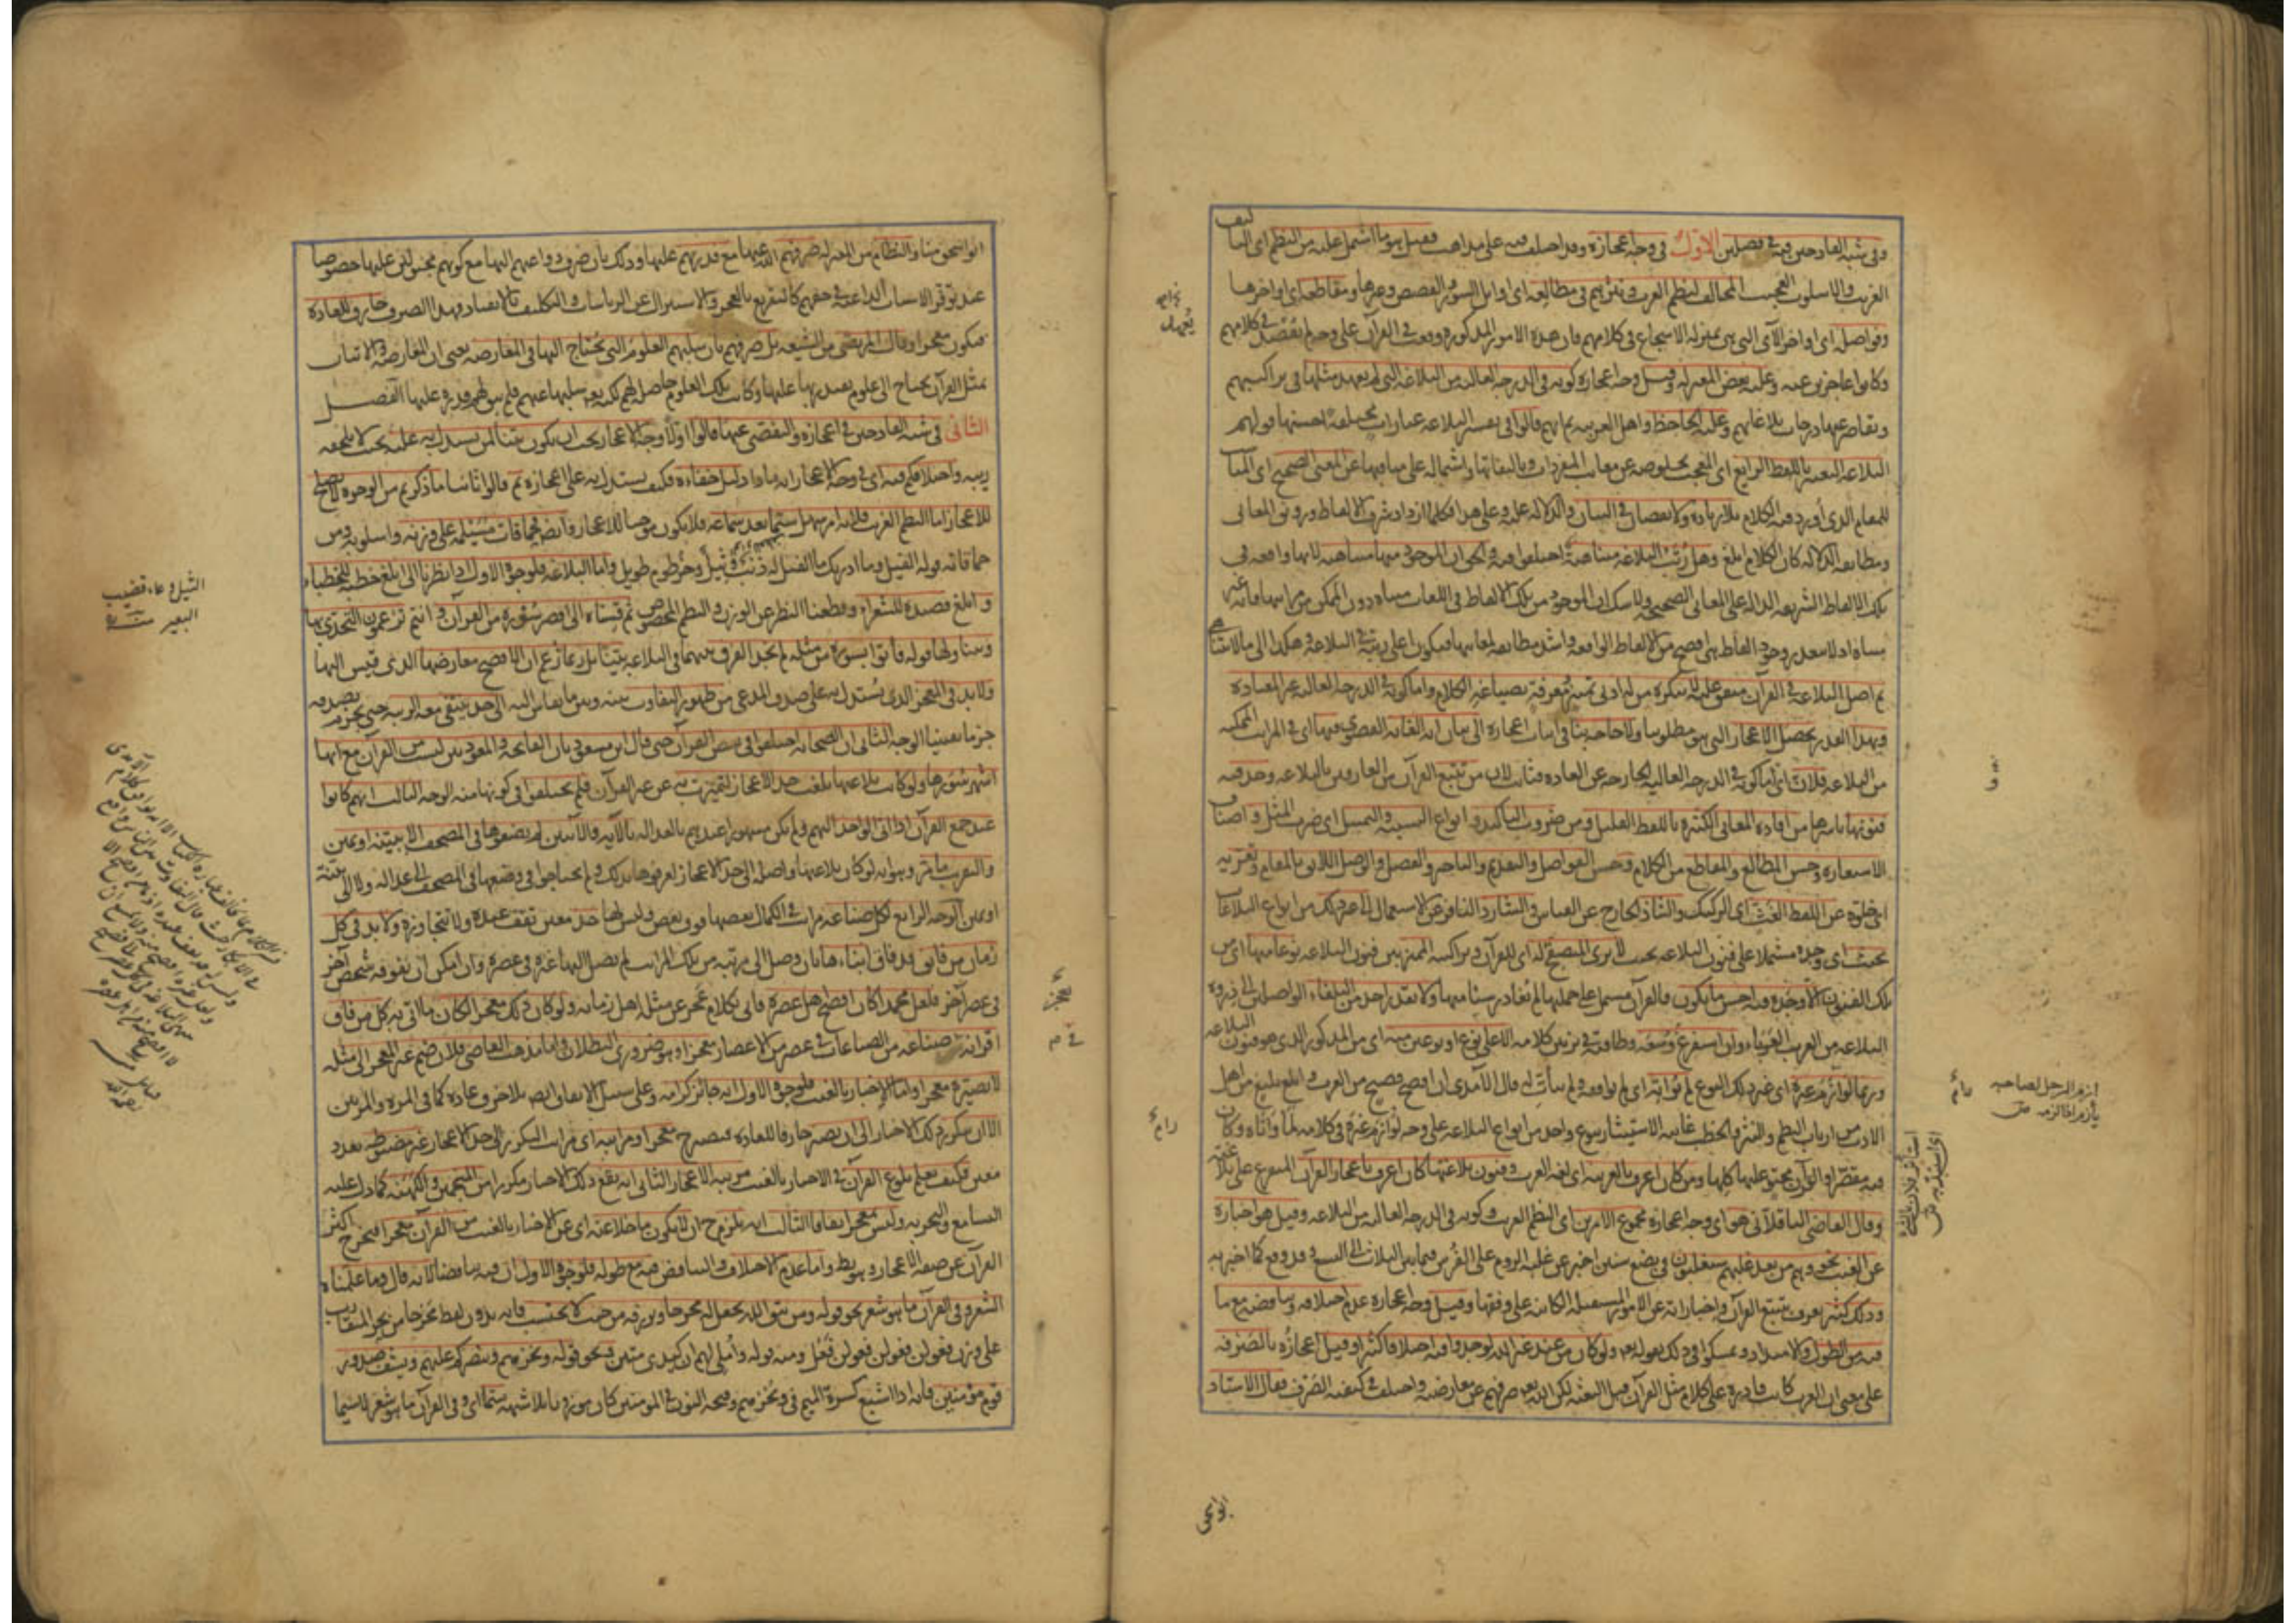 وفى شبه القادحين فيه فى فصلين الاول فى وجه اعجازه وقد اختلف فيه على مذاهب فقيل هو ما اشتمل عليه من النظم اى التأليف
الغريب والاسلوب العجيب المخالف لنظم العرب ونثرهم فى مطالعه اى اوايل السور والقصص وغيرها ومقاطعه اى اواخرها
وفواصله اى اواخر الآى التى هى بمنزلة الاسجاع فى كلامهم فان هذه الامور المذكورة وقعت فى القرآن على وجه لم فى كلامهم
وكانوا عاجزين عنه وعليه بعض المعتزلة وقيل وجه اعجازه كونه فى الدرجة العالية من البلاغة التى لم يعهد مثلها فى تراكيبهم
وتقاصر عنها درجات بلاغاتهم وعليه الجاحظ واهل العربية ثم انهم قالوا فى تفسير البلاغة عبارات مختلفة احسنها قولهم
البلاغة التعبير باللفظ الرايع اى المعجب بخلوصه عن معايب المفردات وتأليفاتها واشتماله على مناقبها عن المعنى الصحيح اى المناسب
للمقام الذى اورد فيه الكلام بلا زيادة ولا نقصان فى البيان والدلالة عليه وعلى هذا فكلما ازداد شرف الالفاظ ورونق المعانى
ومطابقة الدلالة كان الكلام ابلغ وهل رتب البلاغة متناهية اختلفوا فيه والحق ان الموجود منها متناهية لانها واقعة فى
تلك الالفاظ الشريفة الدالة على المعانى الصحيحة ولا شك ان الموجود من تلك الالفاظ فى اللغات متناه دون الممكن من مراتبها فانه غير
متناه اذ لا يتعذر وجود الفاظ هى افصح من الالفاظ الواقعة واشد مطابقة لمعانيها فيكون اعلى رتبة فى البلاغة وهكذا الى ما لا يتناهى
ثم اصل البلاغة فى القرآن متفق عليه لا ينكره من له ادنى تمييز ومعرفة بصياغة الكلام واما كونه فى الدرجة العالية غير المعتادة
وبهذا القدر يحصل الاعجاز الذى هو مطلوبنا ولا حاجة بنا فى اثبات اعجازه الى بيان انه الغاية القصوى فيها اى فى المراتب الممكنة
من البلاغة فلان اى اما كونه فى الدرجة العالية الخارجة عن العادة فثابت لان من تتبع القرآن من العارفين بالبلاغة وجد فيه
فنونها باسرها من افادة المعانى الكثيرة باللفظ القليل ومن ضروب التأكيد وانواع التشبيه والتمثيل اى ضرب المثل واصناف
الاستعارة وحسن المطالع والمقاطع من الكلام وحسن الفواصل والتقديم والتاخير والفصل والوصل اللائق بالمقام وتعريه
اى خلوه عن اللفظ الغث اى الركيك والشاذ الخارج عن القياس والشارد النافر عن الاستعمال الى غير ذلك من انواع البلاغات
بحيث اى وجده مشتملا على فنون البلاغة بحيث لا يرى المتصفح له اى للقرآن وتراكيبه المميز بين فنون البلاغة نوعا منها اى من
تلك الفنون الا وجده فيه احسن ما يكون فالقرآن مشتمل على جملتها لم يغادر شيئا منها ولا يقدر احد من البلغاء الواصلين الى ذروة
البلاغة من العرب العرباء وان استفرغ وسعه وطاقته فى تزيين كلامه الا على نوع او نوعين منه اى من المذكور الذى هو فنون البلاغة
وربما لو ازم غيره اى غير ذلك النوع لم يواته اى لم يوافقه ولم يتأت له قال الآمدى ان افصح فصيح من العرب وابلغ بليغ من اهل
الادب من ارباب النظم والنثر والخطب غايته الاستيثار بنوع واحد من انواع البلاغة على وجه لو ازم غيره فى كلامه لما واتاه وكان
فيه مقصرا والقرآن محتو عليها كلها ومن كان اعرف بالعربية اى لغة العرب وفنون بلاغتها كان اعرف باعجاز القرآن المتفرع على بلاغته
وقال القاضى الباقلانى هو اى وجه اعجازه مجموع الامرين اى النظم الغريب وكونه فى الدرجة العالية من البلاغة وقيل هو اخباره
عن الغيب نحو وهم من بعد غلبهم سيغلبون فى بضع سنين اخبر عن غلبة الروم على الفرس فيما بين الثلاث الى التسع وقد وقع كما اخبر به
وذلك كثير يعرف بتتبع القرآن واخباراته عن الامور المستقبلة الكائنة على وفقها وقيل وجه اعجازه عدم اختلافه وتناقضه مع ما
فيه من الطول والامتداد وتمسكوا فى ذلك بقوله تع ولو كان من عند غير الله لوجدوا فيه اختلافا كثيرا وقيل اعجازه بالصرفة
على معنى ان العرب كانت قادرة على كلام مثل القرآن قبل البعثة لكن الله تع صرفهم عن معارضته واختلف فى كيفية الصرف فقال الاستاد
ازم الرجل لصاحبه
يأزم اذا لزمه ص
ابو اسحق
ابو اسحق منا والنظام من المعتزلة صرفهم الله عنها مع قدرتهم عليها وذلك بان صرف دواعيهم اليها مع كونهم مجبولين عليها خصوصا
عند توفر الاسباب الداعية فى حقهم كالتقريع بالعجز والاستنزال عن الرياسات والتكليف بالانقياد فهذا الصرف خارق للعادة
فيكون معجزا وقال المرتضى من الشيعة بل صرفهم بان سلبهم العلوم التى يحتاج اليها فى المعارضة يعنى ان المعارضة والاتيان
بمثل القرآن يحتاج الى علوم يقتدر بها عليها وكانت تلك العلوم حاصلة لهم لكنه تع سلبها عنهم فلم يبق لهم قدرة عليها الفصل
الثانى فى شبه القادحين فى اعجازه والتفصى عنها قالوا اولا وجه الاعجاز يجب ان يكون بينا لمن يستدل به عليه بحيث لا يلحقه
ريبة واختلافكم فيه اى فى وجه الاعجاز انه ماذا دليل خفائه فكيف يستدل به على اعجازه ثم قالوا ثانيا ما ذكرتم من الوجوه لا يصلح
للاعجاز اما النظم الغريب فلانه امر سهل سيما بعد سماعه فلا يكون موجبا للاعجاز وايض فحماقات مسيلمة على وزنه واسلوبه ومن
حماقاته قوله الفيل وما ادريك ما الفيل له ذنب وثيل وخرطوم طويل واما البلاغة فلوجوه الاول اذا نظرنا الى ابلغ خطبة للخطباء
وابلغ قصيدة للشعراء وقطعنا النظر عن الوزن والنظم المخصوص ثم قسناه الى اقصر سورة من القرآن وانتم تزعمون التحدى بها
ويتناولها قوله فأتوا بسورة من مثله لم نجد الفرق بينهما فى البلاغة بينا بل ربما زعم ان الافصح معارضها الذى قيس اليها
ولا بد فى المعجز الذى يستدل به على صدق المدعى من ظهور التفاوت بينه وبين ما يقاس اليه الى حد ينتفى معه الريبة حتى يجزم بصدقه
جزما يقينيا الوجه الثانى ان الصحابة اختلفوا فى بعض القرآن حتى قال ابن مسعود بان الفاتحة والمعوذتين ليست من القرآن مع انها
اشهر سوره ولو كانت بلاغتها بلغت حد الاعجاز لتميزت به عن غير القرآن فلم يختلفوا فى كونها منه الوجه الثالث انهم كانوا
عند جمع القرآن اذا اتى الواحد اليهم ولم يكن مشهورا عندهم بالعدالة بالآية والآيتين لم يضعوها فى المصحف الا ببينة او يمين
والتقريب ما مر وهو انه لو كان بلاغتها واصلة الى حد الاعجاز لعرفوها بذلك ولم يحتاجوا فى وضعها فى المصحف الى عدالة ولا الى بينة
او يمين الوجه الرابع لكل صناعة مراتب فى الكمال بعضها فوق بعض وليس لها حد معين تقف عنده ولا تتجاوزه ولا بد فى كل
زمان من فايق قد فاق ابناءها بان وصل الى مرتبة من تلك المراتب لم يصل اليها غيره فى عصره وان امكن ان يفوقه شخص آخر
فى عصر آخر فلعل محمدا كان افصح اهل عصره فاتى بكلام عجز عن مثله اهل زمانه ولو كان ذلك معجزا لكان ما اتى به كل من فاق
اقرانه فى صناعة من الصناعات فى عصر من الاعصار معجزا وهو ضرورى البطلان واما مذهب القاضى فلان ضم غير المعجز الى مثله
لا يصيره معجزا واما الاخبار بالغيب فلوجوه الاول انه جائز كرامة وعلى سبيل الاتفاق ايض بلا خرق عادة كما فى المرة والمرتين
الا ان يتكرر ذلك الاخبار الى ان يصير خارقا للعادة فيصير ح معجزا ومراتبه اى مراتب التكرر الى حد الاعجاز غير مضبوطة بعدد
معين فكيف يعلم بلوغ القرآن فى الاخبار بالغيب مرتبة الاعجاز الثانى انه يقع ذلك الاخبار مكررا من المنجمين والكهنة كما دل عليه
التسامع والتجربة وليس معجزا اتفاقا الثالث انه يلزم ح ان لا يكون ما خلا عنه اى عن الاخبار بالغيب من القرآن معجزا فيخرج اكثر
القرآن عن صفة الاعجاز وهو بط واما عدم الاختلاف والتناقض فيه مع طوله فلوجوه الاول ان فيه تناقضا لانه قال وما علمناه
الشعر وفى القرآن ما هو شعر نحو قوله ومن يتق الله يجعل له مخرجا ويرزقه من حيث لا يحتسب فانه بدون لفظ مخرجا من بحر المتقارب
على وزن فعولن فعولن فعولن فعل ومنه قوله واملى لهم ان كيدى متين ونحو قوله ويخزهم وينصركم عليهم ويشف صدور
قوم مؤمنين فانه اذا اشبع كسرة الميم فى ويخزهم وفتحة النون فى المؤمنين كان موزونا بلا شبهة سيما اى وفى القرآن ما هو شعر لا سيما
الثيل وعاء قضيب
البعير